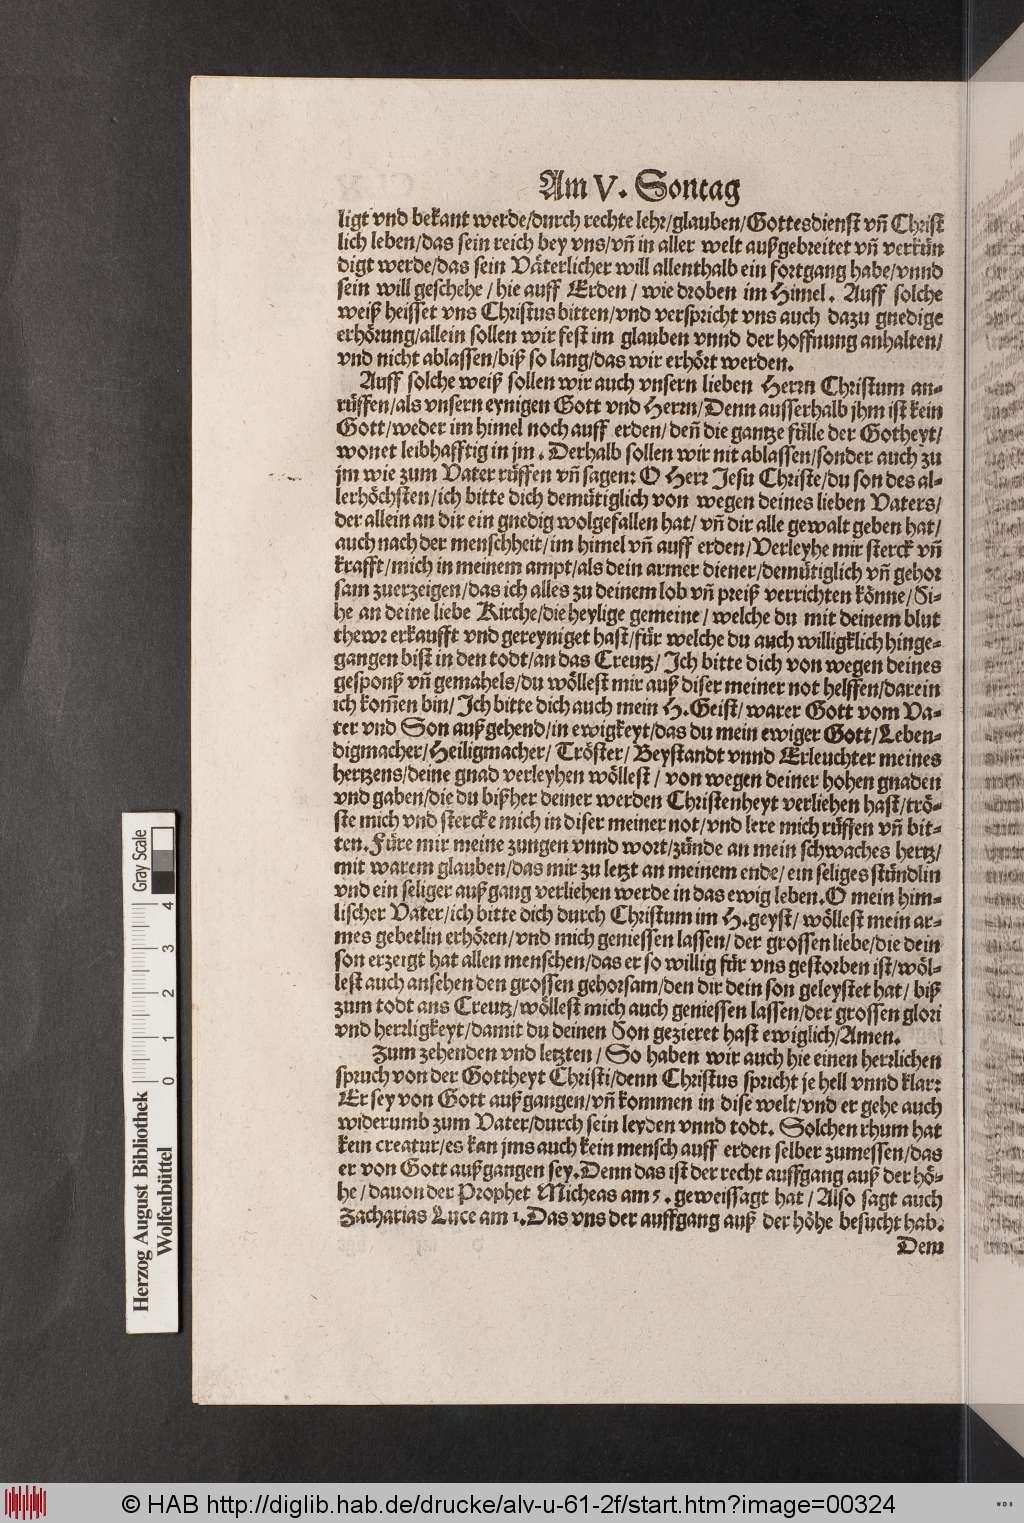 Am V. Sontag
ligt vnd bekant werde/durch rechte lehr/glauben/Gottesdienst vñ Christ
lich leben/das sein reich bey vns/vñ in aller welt außgebreitet vñ verkün
digt werde/das sein Väterlicher will allenthalb ein fortgang habe/vnnd
sein will geschehe / hie auff Erden / wie droben im Himel. Auff solche
weiß heisset vns Christus bitten/vnd verspricht vns auch dazu gnedige
erhörung/allein sollen wir fest im glauben vnnd der hoffnung anhalten/
vnd nicht ablassen/biß so lang/das wir erhört werden.
Auff solche weiß sollen wir auch vnsern lieben Herrn Christum an-
rüffen/als vnsern eynigen Gott vnd Herrn/Denn ausserhalb jhm ist kein
Gott/weder im himel noch auff erden/deñ die gantze fülle der Gotheyt/
wonet leibhafftig in jm. Derhalb sollen wir nit ablassen/sonder auch zu
jm wie zum Vater rüffen vñ sagen: O Herr Jesu Christe/du son des al-
lerhöchsten/ich bitte dich demütiglich von wegen deines lieben Vaters/
der allein an dir ein gnedig wolgefallen hat/ vñ dir alle gewalt geben hat/
auch nach der menschheit/im himel vñ auff erden/Verleyhe mir sterck vñ
krafft/mich in meinem ampt/als dein armer diener/demütiglich vñ gehor
sam zuerzeigen/das ich alles zu deinem lob vñ preiß verrichten könne/Si-
he an deine liebe Kirche/die heylige gemeine/ welche du mit deinem blut
thewr erkaufft vnd gereyniget hast/für welche du auch willigklich hinge-
gangen bist in den todt/an das Creutz/ Ich bitte dich von wegen deines
gesponß vñ gemahels/du wöllest mir auß diser meiner not helffen/darein
ich kom̃en bin/Ich bitte dich auch mein H.Geist/warer Gott vom Va-
ter vnd Son außgehend/in ewigkeyt/das du mein ewiger Gott/Leben-
digmacher/Heiligmacher/ Tröster/ Beystandt vnnd Erleuchter meines
hertzens/deine gnad verleyhen wöllest/ von wegen deiner hohen gnaden
vnd gaben/die du bißher deiner werden Christenheyt verliehen hast/trö-
ste mich vnd stercke mich in diser meiner not/vnd lere mich rüffen vñ bit-
ten. Füre mir meine zungen vnnd wort/zünde an mein schwaches hertz/
mit warem glauben/das mir zu letzt an meinem ende/ein seliges stündlin
vnd ein seliger außgang verliehen werde in das ewig leben. O mein him-
lischer Vater/ich bitte dich durch Christum im H.geyst/ wöllest mein ar-
mes gebetlin erhören/vnd mich geniessen lassen/ der grossen liebe/die dein
son erzeigt hat allen menschen/das er so willig für vns gestorben ist/wöl-
lest auch ansehen den grossen gehorsam/den dir dein son geleystet hat/ biß
zum todt ans Creutz/wöllest mich auch geniessen lassen/der grossen glori
vnd herrligkeyt/damit du deinen Son gezieret hast ewiglich/Amen.
Zum zehenden vnd letzten/ So haben wir auch hie einen herrlichen
spruch von der Gottheyt Christi/denn Christus spricht je hell vnnd klar:
Er sey von Gott außgangen/vñ kommen in dise welt/vnd er gehe auch
widerumb zum Vater/durch sein leyden vnnd todt. Solchen rhum hat
kein creatur/es kan jms auch kein mensch auff erden selber zumessen/das
er von Gott außgangen sey. Denn das ist der recht auffgang auß der hö-
he/ dauon der Prophet Micheas am 5. geweissagt hat/ Also sagt auch
Zacharias Luce am 1. Das vns der auffgang auß der höhe besucht hab.
Dem
Gray Scale
0 1 2 3 4
Herzog August Bibliothek
Wolfenbüttel
© HAB http://diglib.hab.de/drucke/alv-u-61-2f/start.htm?image=00324